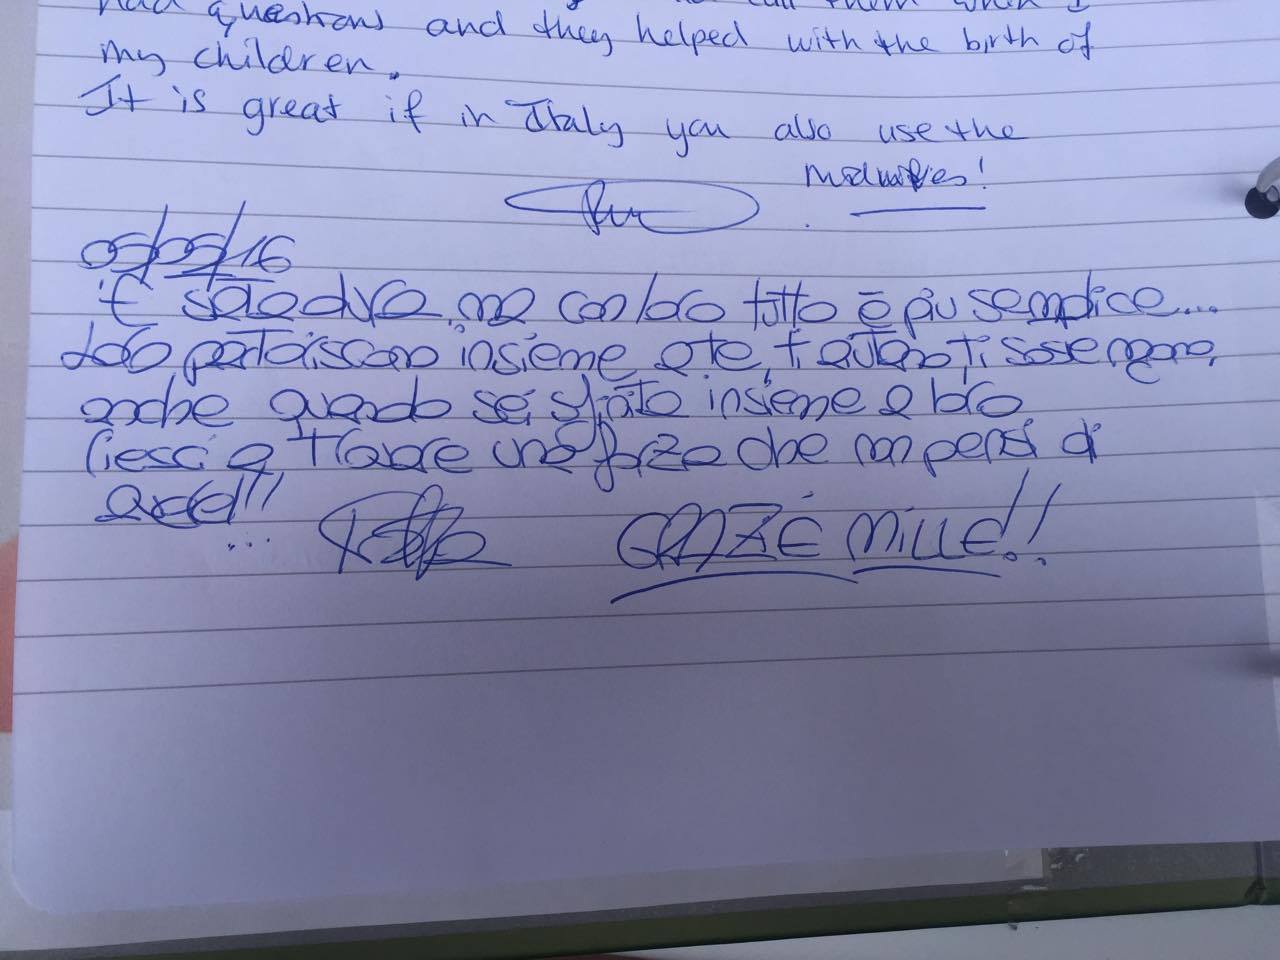 had questions and they helped with the birth of
my children.
It is great if in Italy you also use the
midwifes!
05/05/16
È stato duro, ma con loro tutto è più semplice...
Loro partoriscono insieme a te, ti aiutano, ti sostengono,
anche quando sei sfinito insieme a loro
riesci a trovare una forza che non pensi di
avere!!
...
GRAZIE MILLE!!